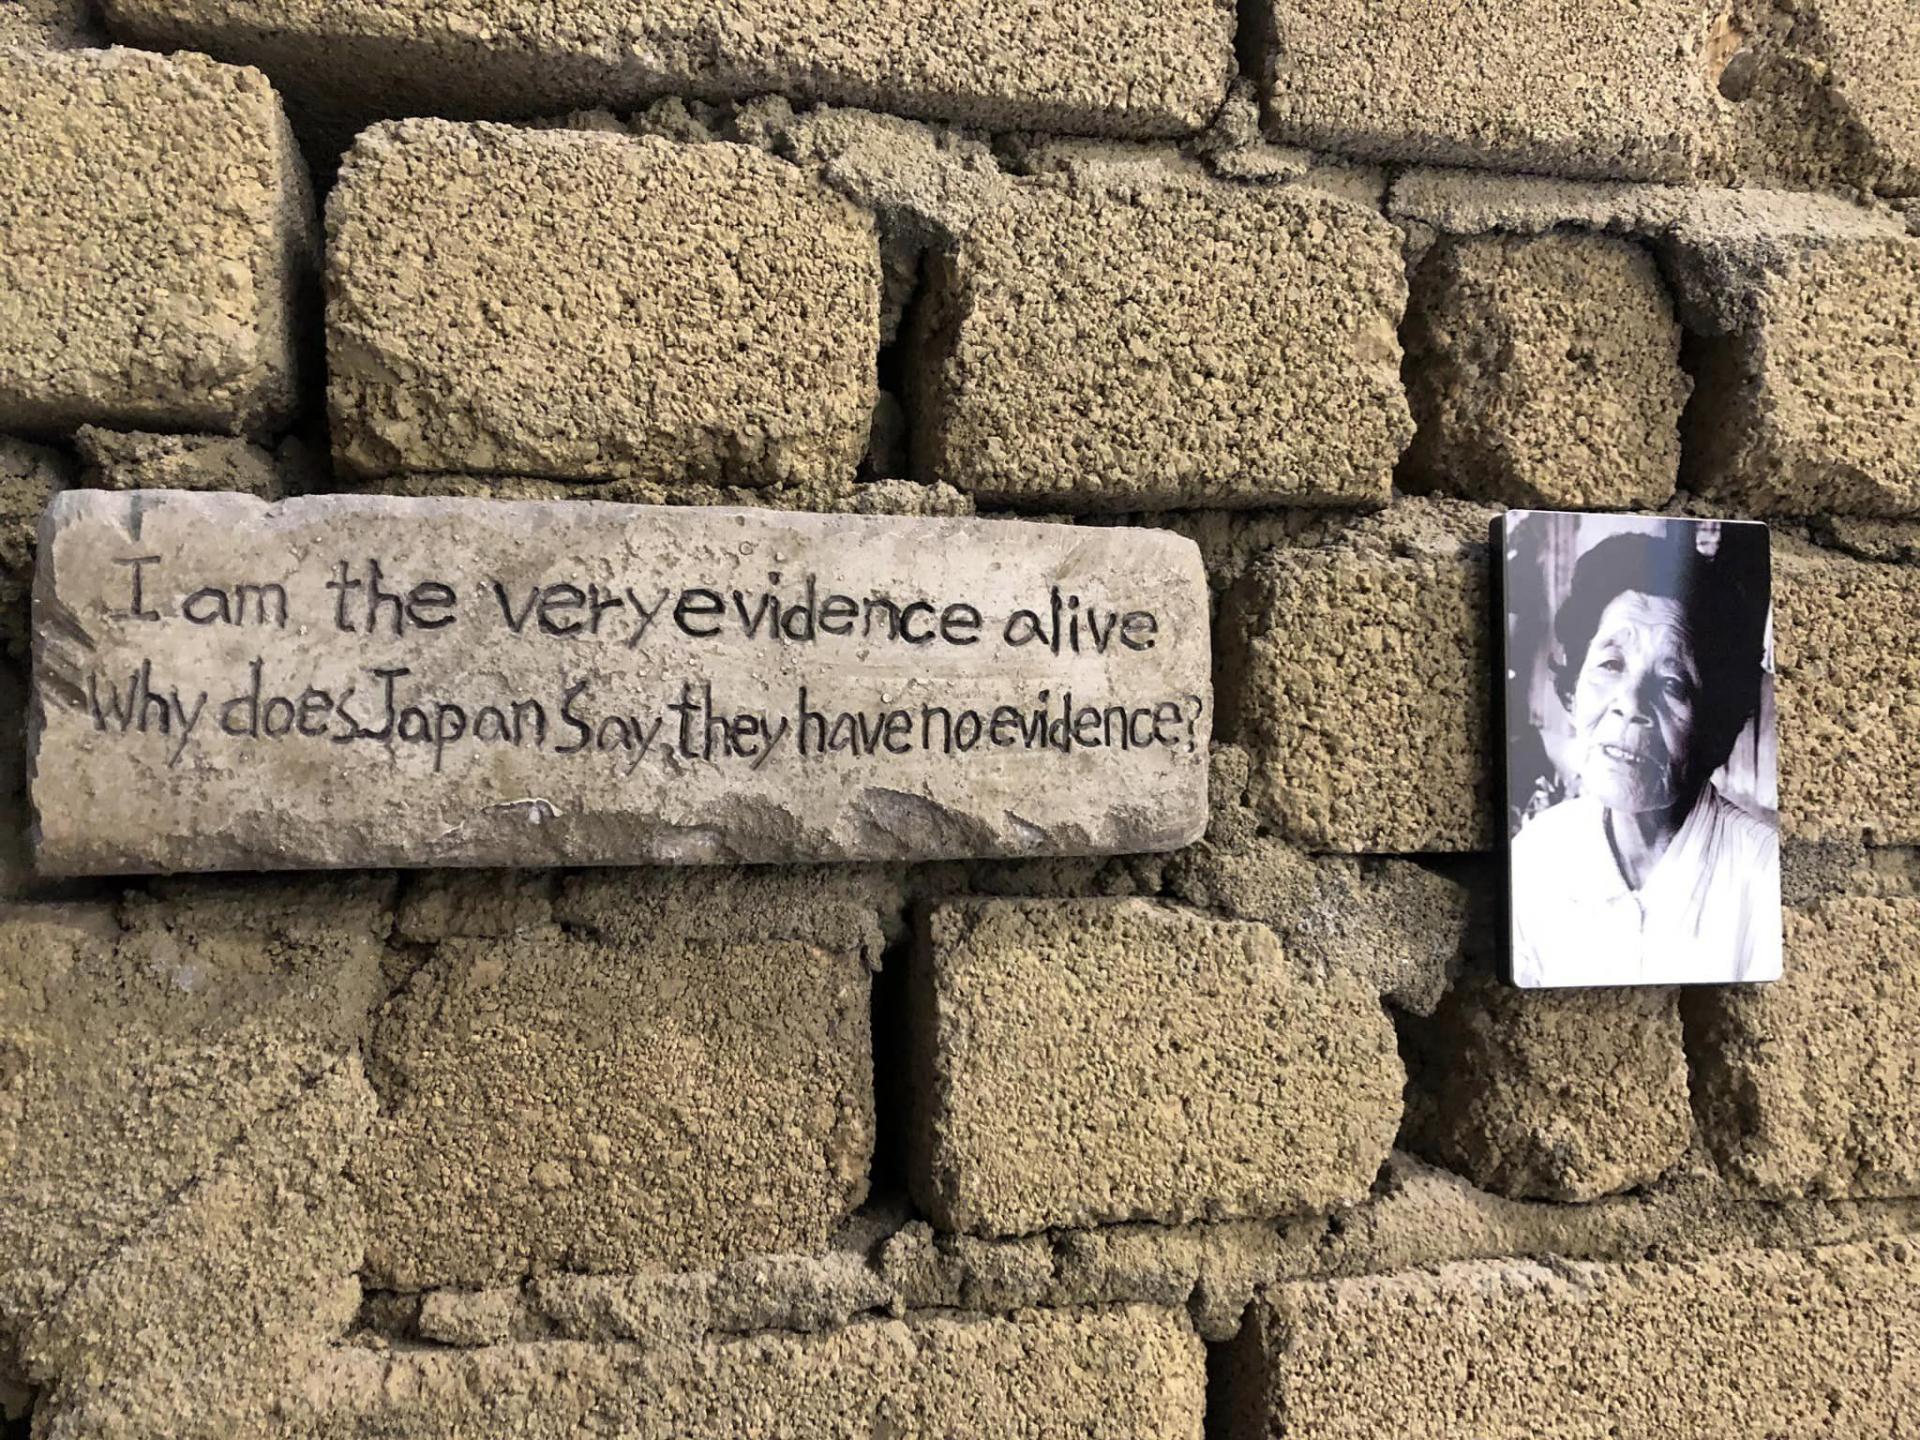 I am the very evidence alive
Why does Japan Say, they have no evidence?